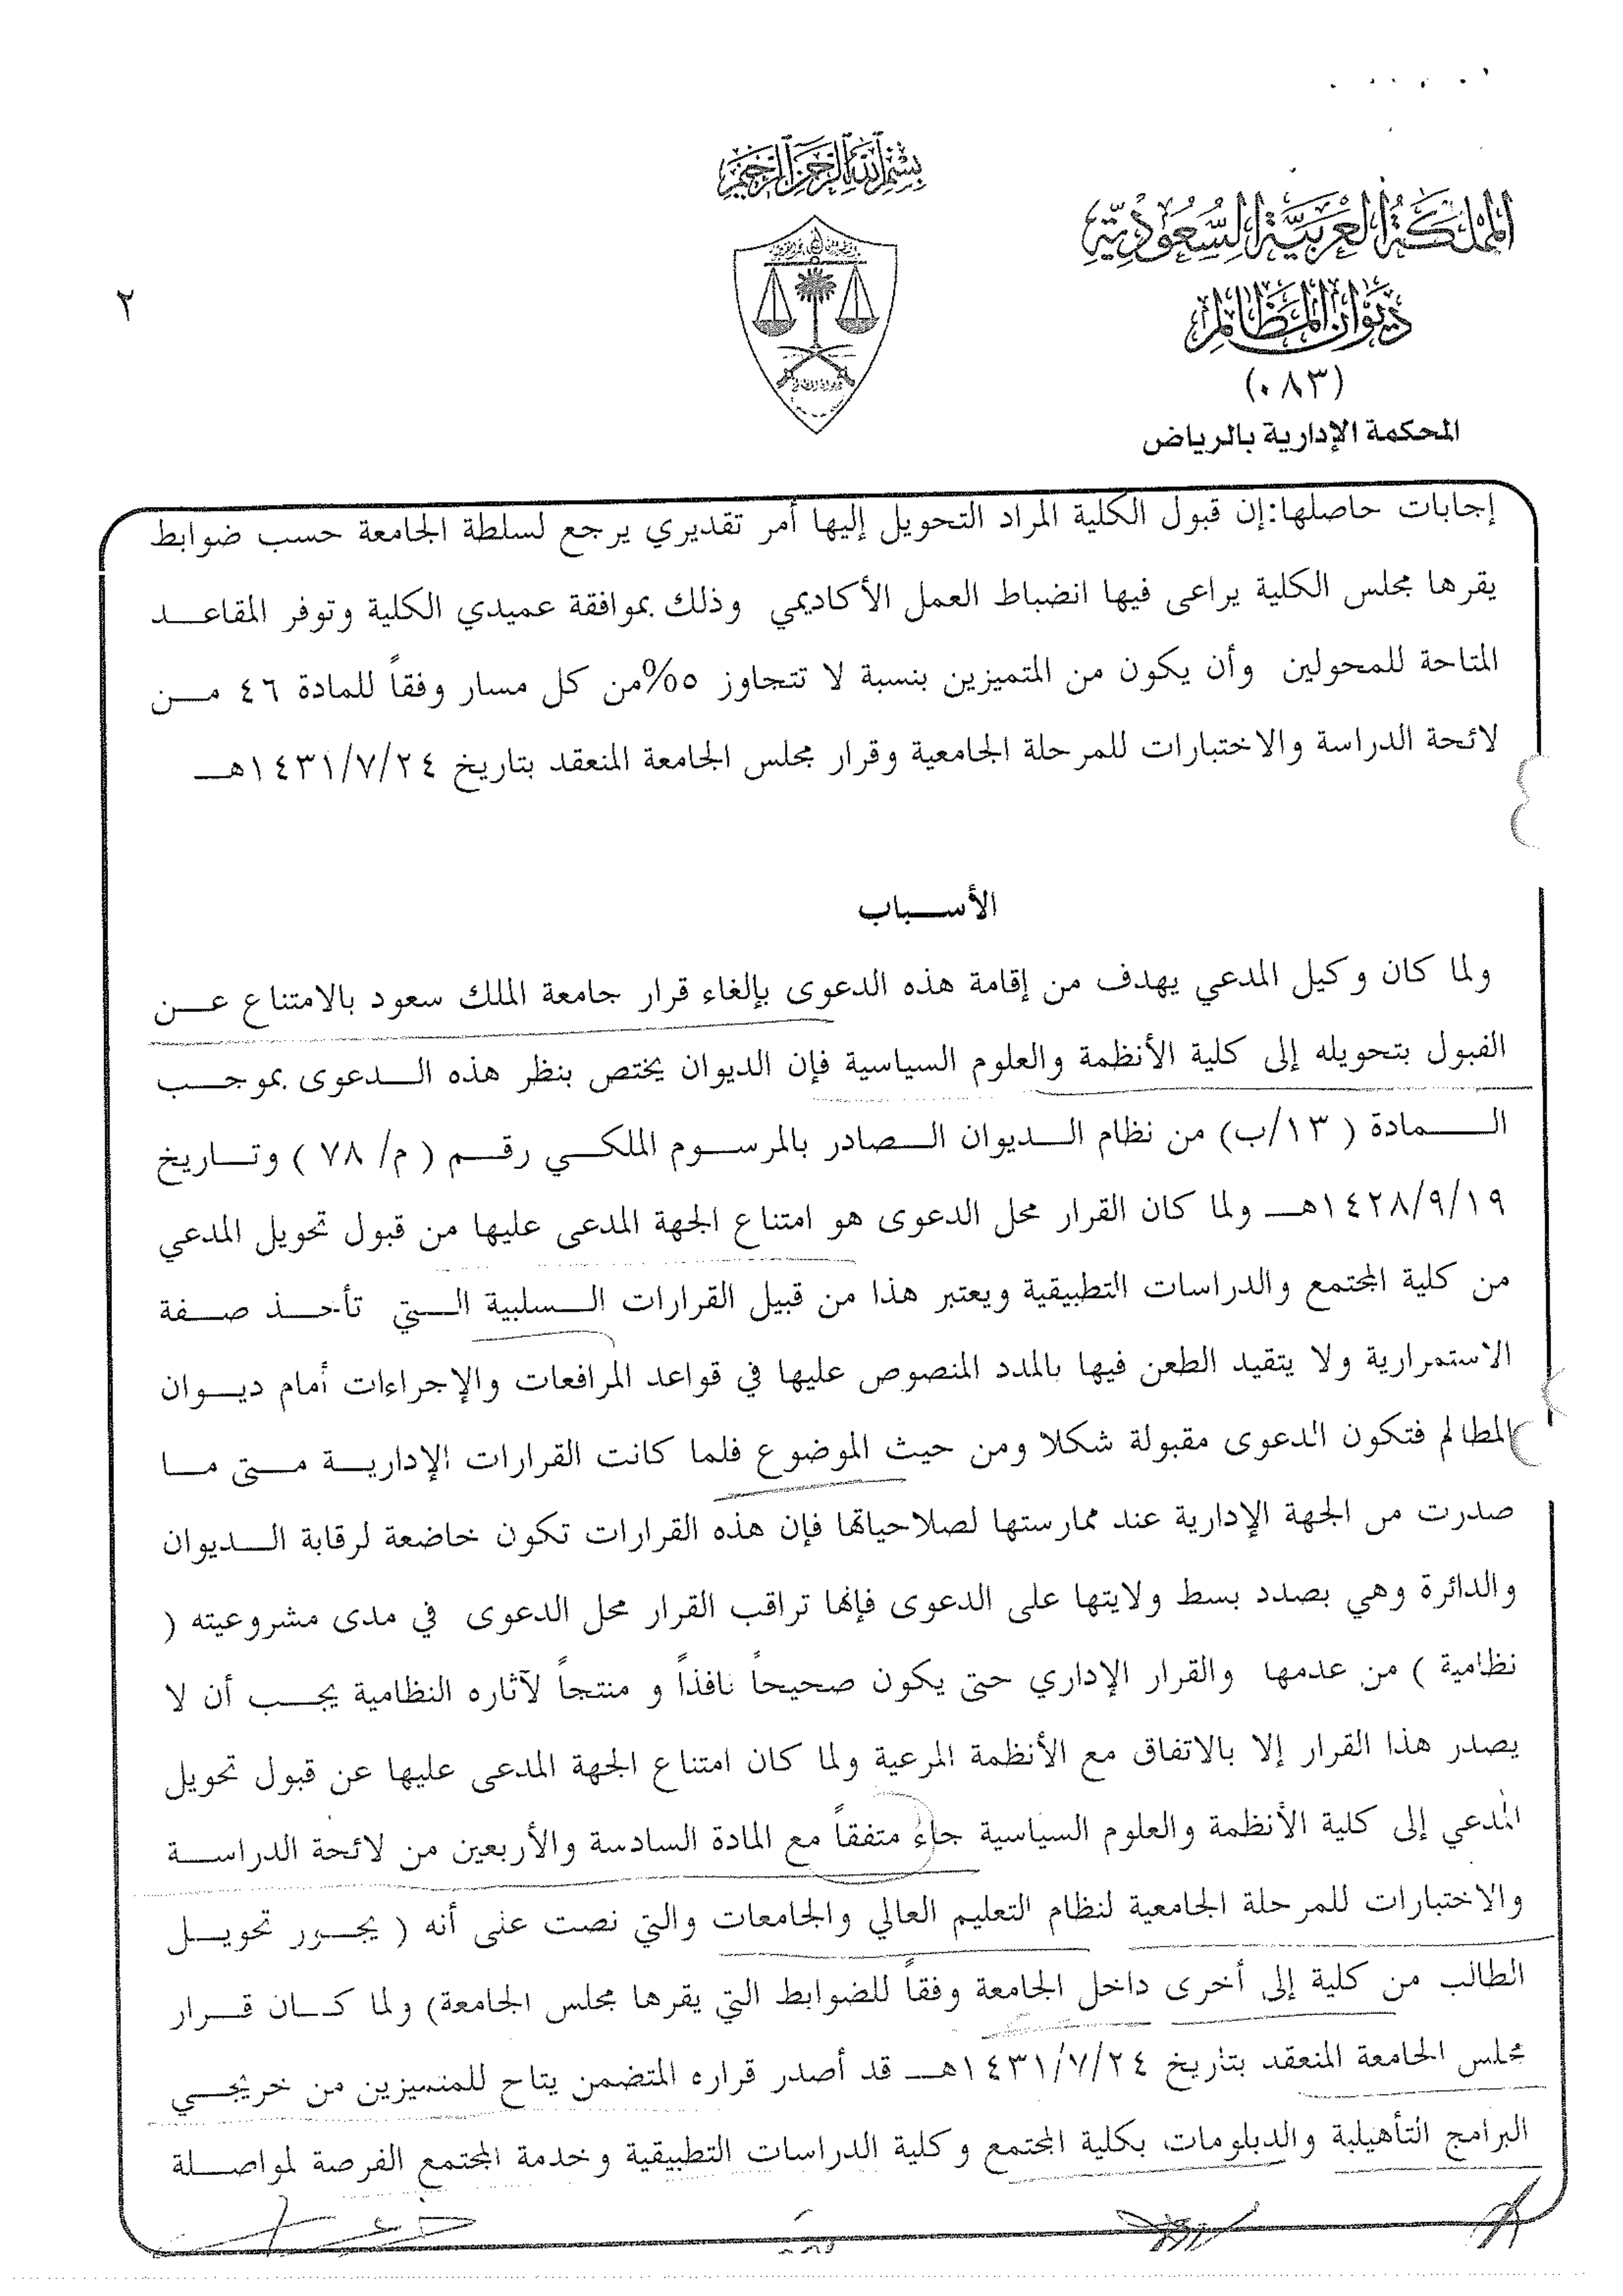 بسم الله الرحمن الرحيم
المملكة العربية السعودية
ديوان المظالم
(٠٨٣)
المحكمة الإدارية بالرياض
٢
إجابات حاصلها:إن قبول الكلية المراد التحويل إليها أمر تقديري يرجع لسلطة الجامعة حسب ضوابط
يقرها مجلس الكلية يراعى فيها انضباط العمل الأكاديمي وذلك بموافقة عميدي الكلية وتوفر المقاعد
المتاحة للمحولين وأن يكون من المتميزين بنسبة لا تتجاوز ٥%من كل مسار وفقاً للمادة ٤٦ من
لائحة الدراسة والاختبارات للمرحلة الجامعية وقرار مجلس الجامعة المنعقد بتاريخ ١٤٣١/٧/٢٤هـ
الأسباب
ولما كان وكيل المدعي يهدف من إقامة هذه الدعوى بإلغاء قرار جامعة الملك سعود بالامتناع عن
القبول بتحويله إلى كلية الأنظمة والعلوم السياسية فإن الديوان يختص بنظر هذه الدعوى بموجب
المادة ( ١٣/ب) من نظام الديوان الصادر بالمرسوم الملكي رقم ( م/ ٧٨ ) وتاريخ
١٤٢٨/٩/١٩هـ ولما كان القرار محل الدعوى هو امتناع الجهة المدعى عليها من قبول تحويل المدعي
من كلية المجتمع والدراسات التطبيقية ويعتبر هذا من قبيل القرارات السلبية التي تأخذ صفة
الاستمرارية ولا يتقيد الطعن فيها بالمدد المنصوص عليها في قواعد المرافعات والإجراءات أمام ديوان
المظالم فتكون الدعوى مقبولة شكلا ومن حيث الموضوع فلما كانت القرارات الإدارية متى ما
صدرت من الجهة الإدارية عند ممارستها لصلاحياتها فإن هذه القرارات تكون خاضعة لرقابة الديوان
والدائرة وهي بصدد بسط ولايتها على الدعوى فإنها تراقب القرار محل الدعوى في مدى مشروعيته (
نظامية ) من عدمها والقرار الإداري حتى يكون صحيحاً نافذاً و منتجاً لآثاره النظامية يجب أن لا
يصدر هذا القرار إلا بالاتفاق مع الأنظمة المرعية ولما كان امتناع الجهة المدعى عليها عن قبول تحويل
المدعي إلى كلية الأنظمة والعلوم السياسية جاء متفقاً مع المادة السادسة والأربعين من لائحة الدراسة
والاختبارات للمرحلة الجامعية لنظام التعليم العالي والجامعات والتي نصت على أنه ( يجوز تحويل
الطالب من كلية إلى أخرى داخل الجامعة وفقاً للضوابط التي يقرها مجلس الجامعة) ولما كان قرار
مجلس الجامعة المنعقد بتاريخ ١٤٣١/٧/٢٤هـ قد أصدر قراره المتضمن يتاح للمتميزين من خريجي
البرامج التأهيلية والدبلومات بكلية المجتمع وكلية الدراسات التطبيقية وخدمة المجتمع الفرصة لمواصلة